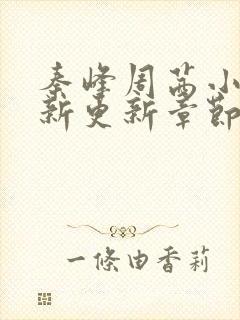 秦峰周茜小
新更新章节
一條由香莉